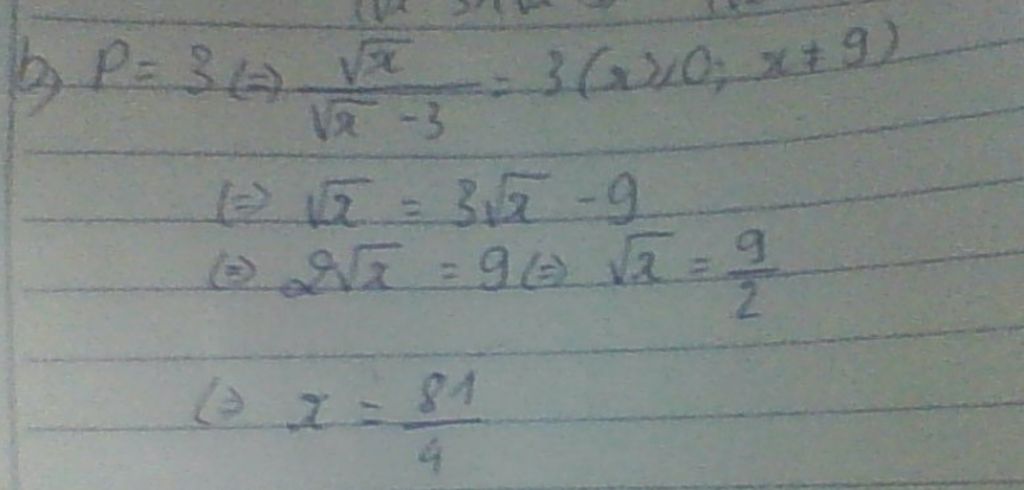 b, P = 3 (=) √x / (√x - 3) = 3 (x ≥ 0; x ≠ 9)
(=) √x = 3√x - 9
(=) 2√x = 9 (=) √x = 9/2
(=) x = 81/4